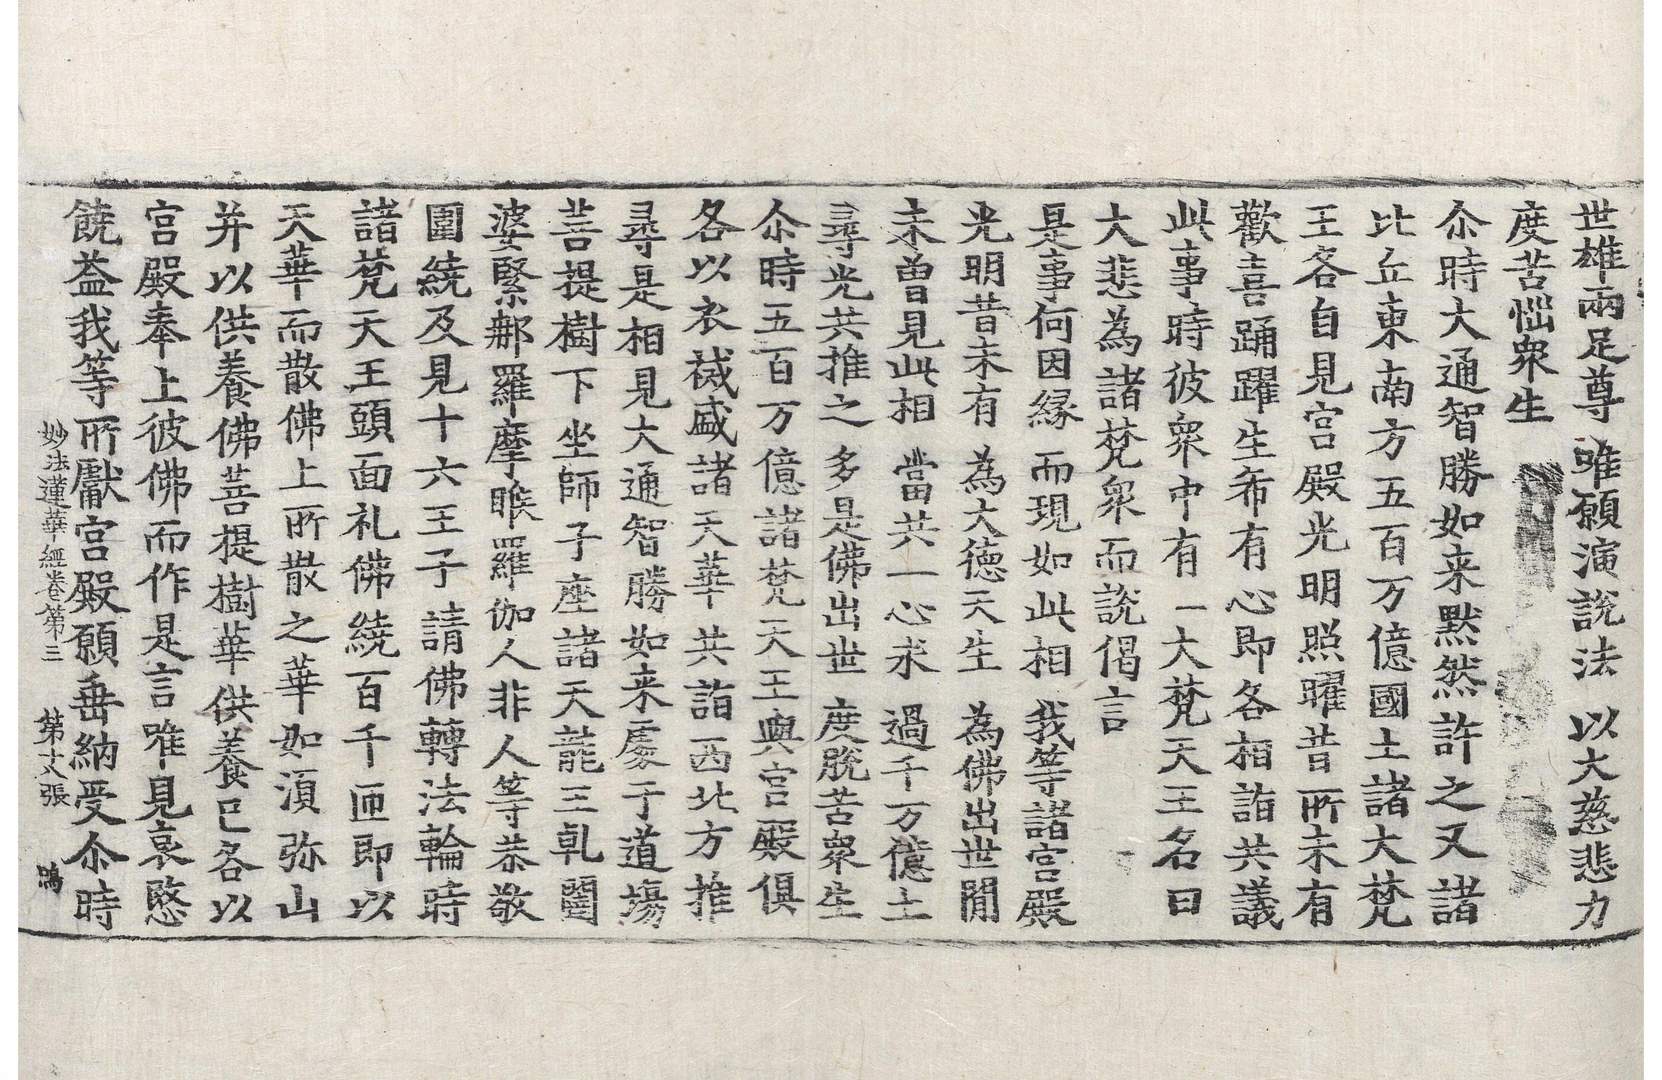 世雄兩足尊 唯願演說法 以大慈悲力
度苦惱衆生
尒時大通智勝如来默然許之又諸
比丘東南方五百万億國土諸大梵
王各自見宫殿光明照曜昔所未有
歡喜踊躍生希有心即各相詣共議
此事時彼衆中有一大梵天王名曰
大悲為諸梵衆而說偈言
是事何因緣 而現如此相 我等諸宫殿
光明昔未有 為大德天生 為佛出世閒
未曾見此相 當共一心求 過千万億土
尋光共推之 多是佛出世 度脫苦衆生
尒時五百万億諸梵天王與宫殿俱
各以衣裓盛諸天華共詣西北方推
尋是相見大通智勝如来處于道場
菩提樹下坐師子座諸天龍王乹闥
婆緊那羅摩睺羅伽人非人等恭敬
圍繞及見十六王子請佛轉法輪時
諸梵天王頭面礼佛繞百千匝即以
天華而散佛上所散之華如湏弥山
并以供養佛菩提樹華供養已各以
宫殿奉上彼佛而作是言唯見哀愍
饒益我等所獻宫殿願垂納受尒時
妙法蓮華經卷第三 第十八張 鴻